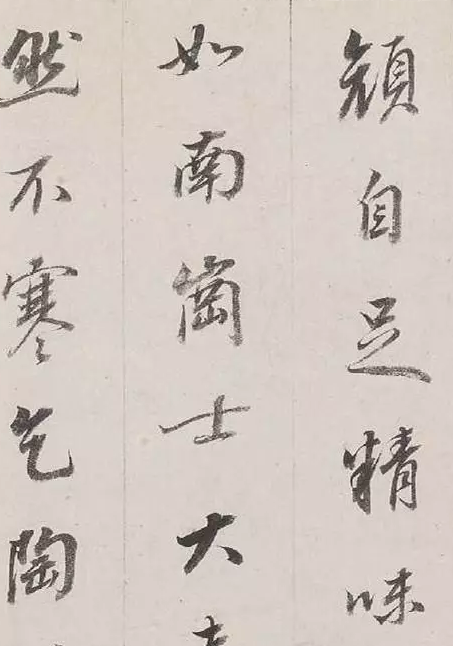 自足精味
如南士大
然不寒乞陶